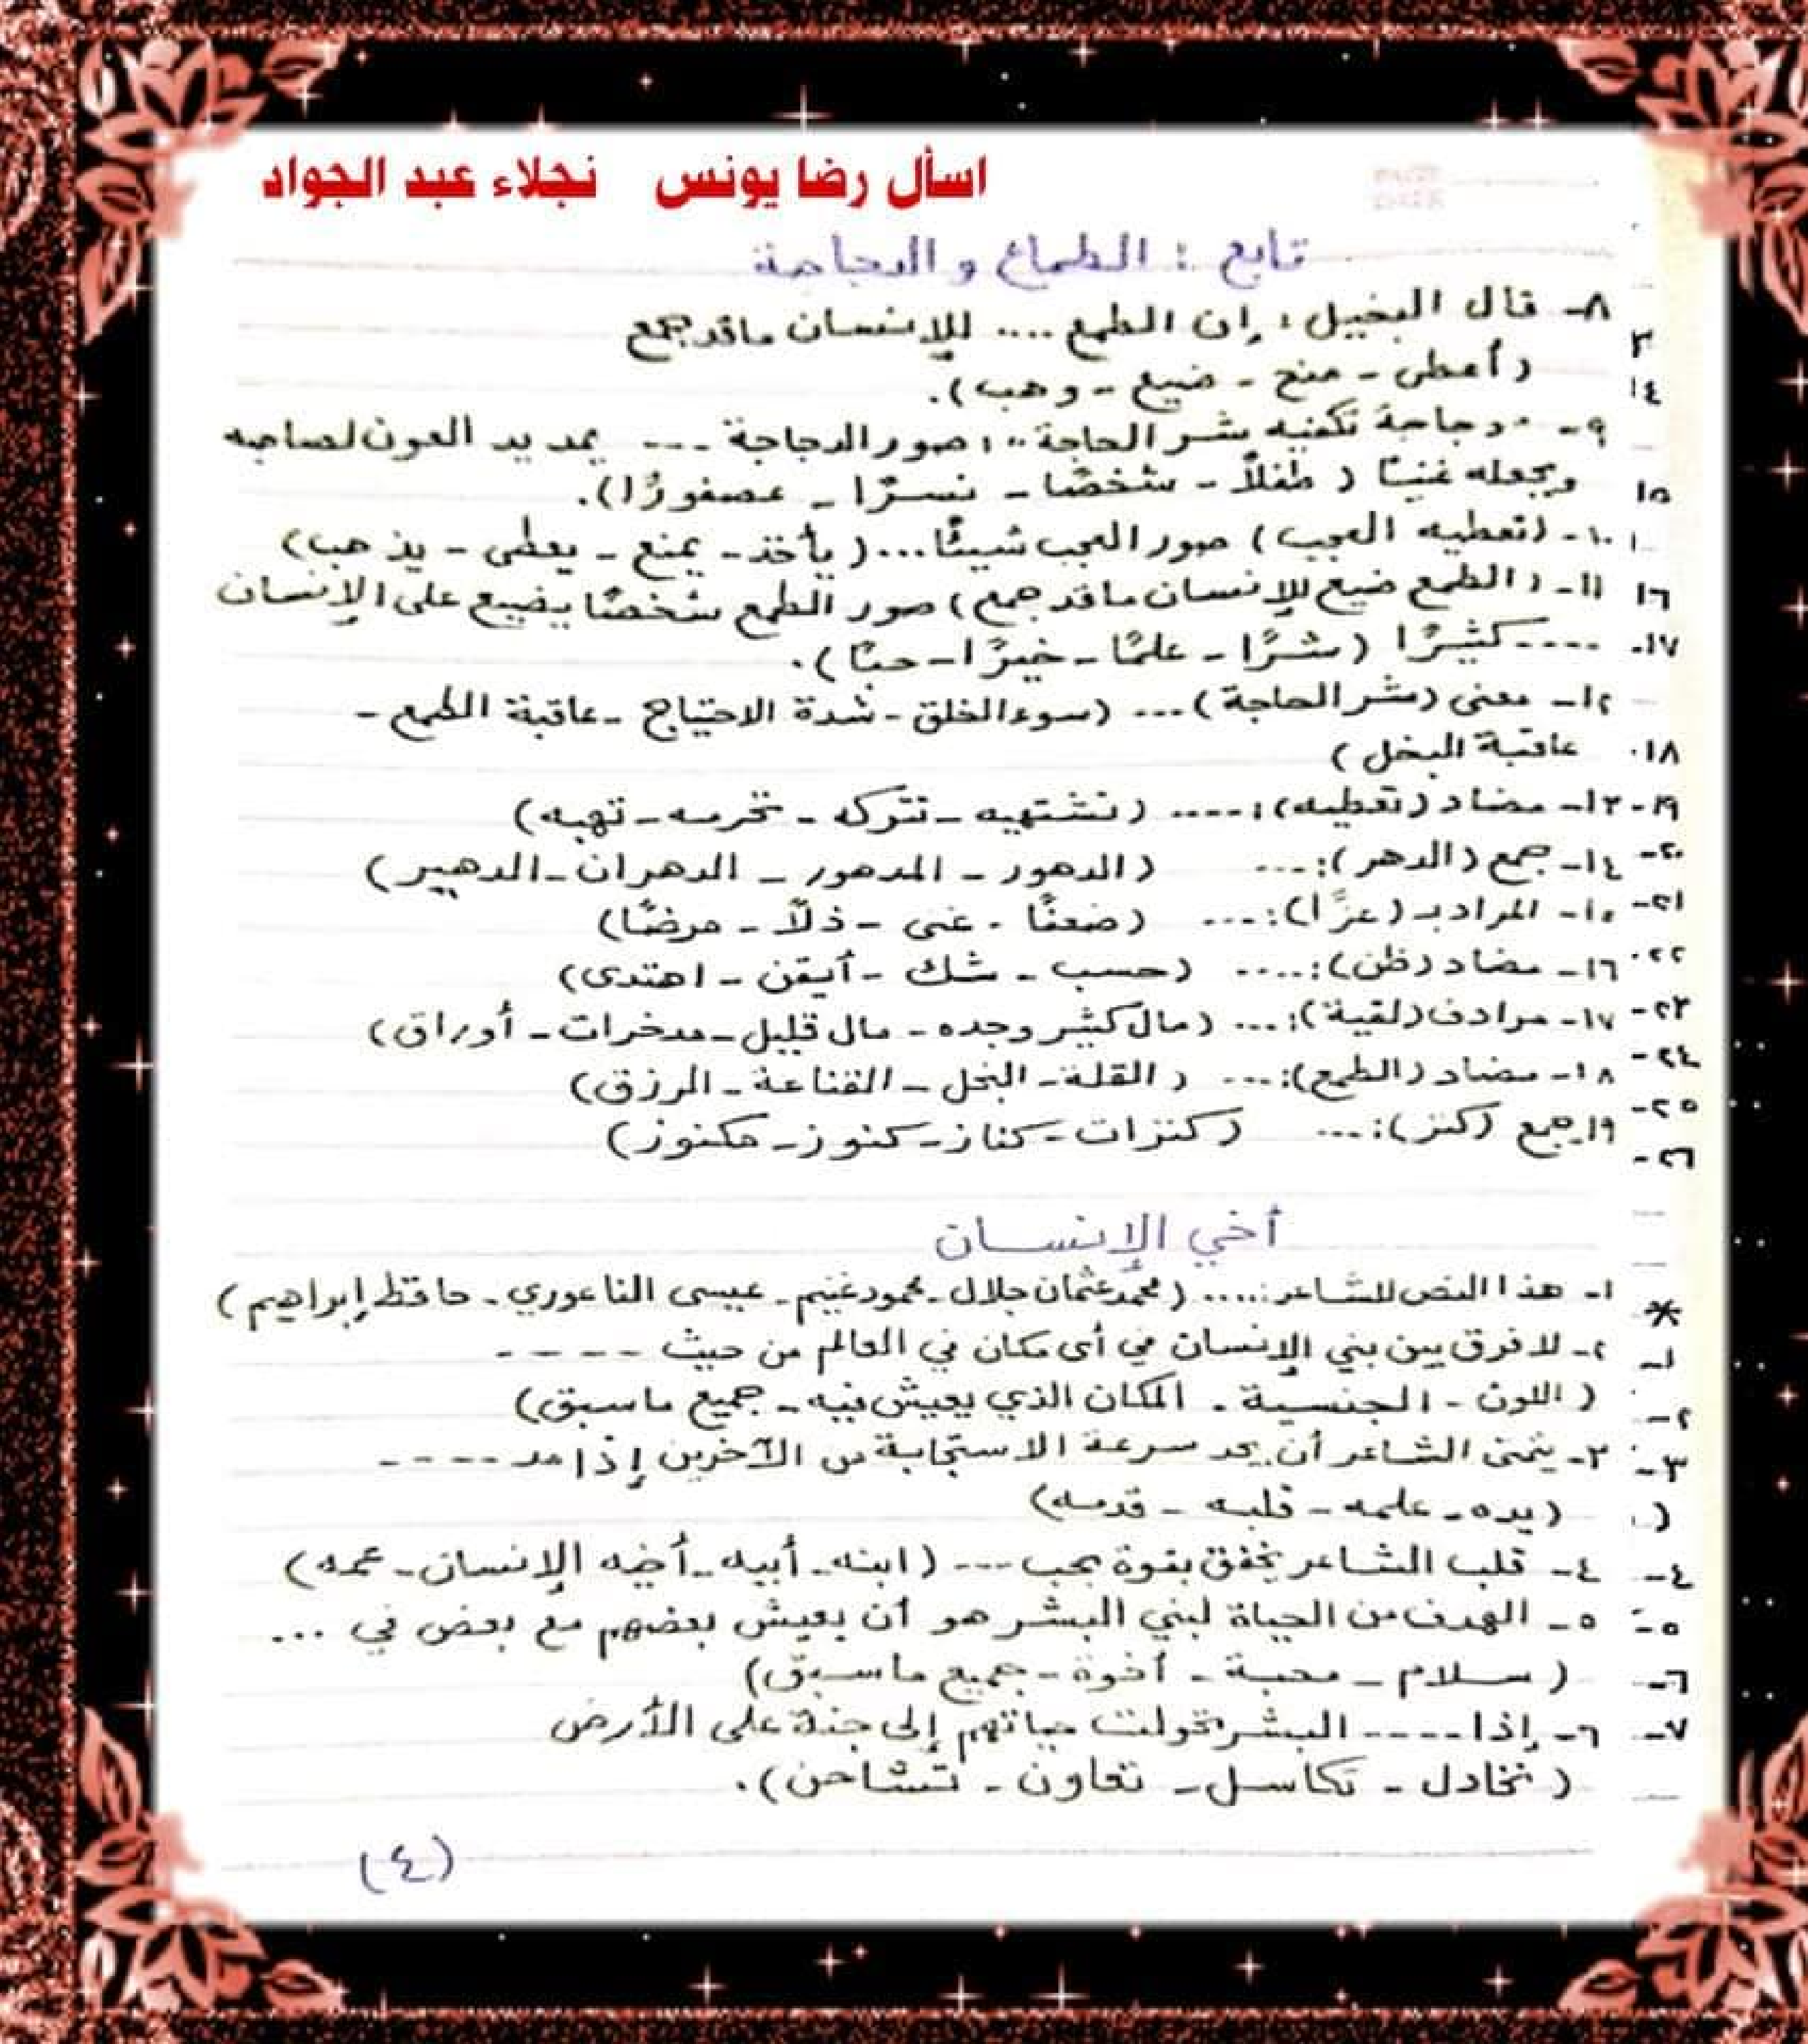 اسأل رضا يونس   نجلاء عبد الجواد
تابع : الطماع والدجاجة
٨- قال البخيل : إن الطمع .... للإنسان ما قد جمع
٣
(أعطى - منح - ضيع - وهب).
١٤
٩- "دجاجة تكفيه شر الحاجة" ، صور الدجاجة --- يمد يد العون لصاحبه
ويجعله غنيًا ( طفلًا - شخصًا - نسرًا - عصفورًا ).
١٥
١٠- (تعطيه العجب) صور العجب شيئًا ... ( يأخذ - يمنع - يعطى - يذهب)
١١- ( الطمع ضيع للإنسان ما قد جمع) صور الطمع شخصًا يضيع على الإنسان
١٦
---- كثيرًا (شرًا - علمًا - خيرًا - حبًا).
١٧-
١٢- معنى (شر الحاجة) ... (سوء الخلق - شدة الاحتياج - عاقبة الطمع -
عاقبة البخل )
١٨٠
١٣- مضاد (تعطيه): .... ( تشتهيه - تتركه - تحرمه - تهبه)
١٩-
١٤- جمع (الدهر): ... ( الدهور - المدهور - الدهران - الدهير)
٢٠-
١٥- المراد بـ (عزًّا): ... (ضعفًا - غنى - ذلًا - مرضًا)
٢١-
١٦- مضاد (ظن): .... (حسب - شك - أيقن - اهتدى)
٢٢٠
١٧- مرادف (لقية): ... (مال كثير وجده - مال قليل - مدخرات - أوراق)
٢٣-
١٨- مضاد (الطمع): ... ( القلة - البخل - القناعة - الرزق)
٢٤-
١٩- جمع (كنز): ... (كنزات - كناز - كنوز - مكنوز)
٢٥-
٢٦-
أخي الإنسان
١- هذا النص للشاعر: .... (محمد عثمان جلال - محمود غنيم - عيسى الناعوري - حافظ إبراهيم)
*
٢- لا فرق بين بني الإنسان في أى مكان في العالم من حيث ----
١-
( اللون - الجنسية - المكان الذي يعيش فيه - جميع ما سبق)
٢-
٣- يتمنى الشاعر أن يجد سرعة الاستجابة من الآخرين إذا مد ----
٣-
(يده - علمه - قلبه - قدمه)
٤- قلب الشاعر يخفق بقوة بحب --- ( ابنه - أبيه - أخيه الإنسان - عمه)
٤-
٥- الهدف من الحياة لبني البشر هو أن يعيش بعضهم مع بعض في ...
٥-
( سلام - محبة - أخوة - جميع ما سبق)
٦-
٦- إذا ---- البشر تحولت حياتهم إلى جنة على الأرض
٧-
( تخادل - تكاسل - تعاون - تشاحن).
(٤)